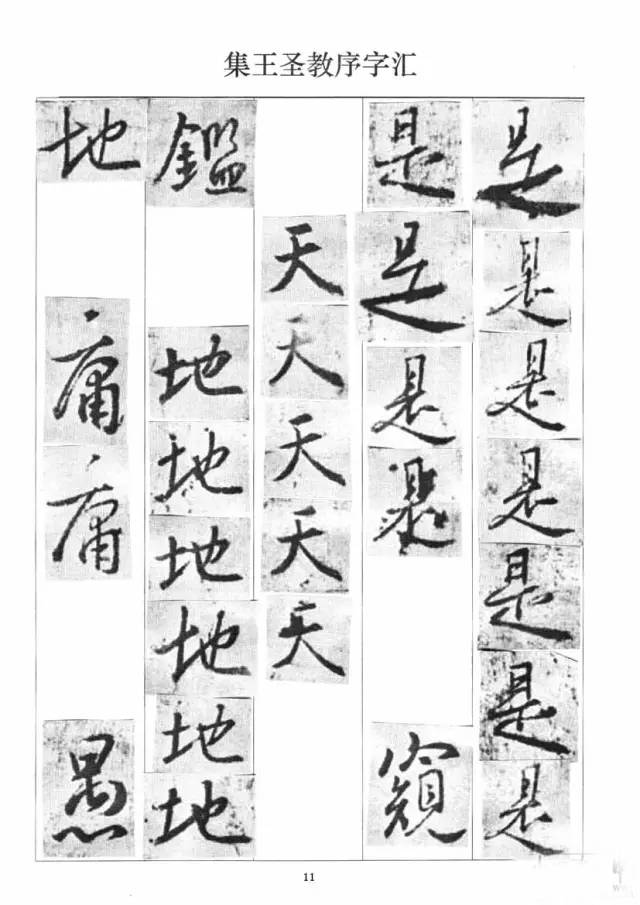 集王圣教序字汇
是是是是是是是
是是是是窺
天天天天天
鑑地地地地地地
地庸庸愚
11